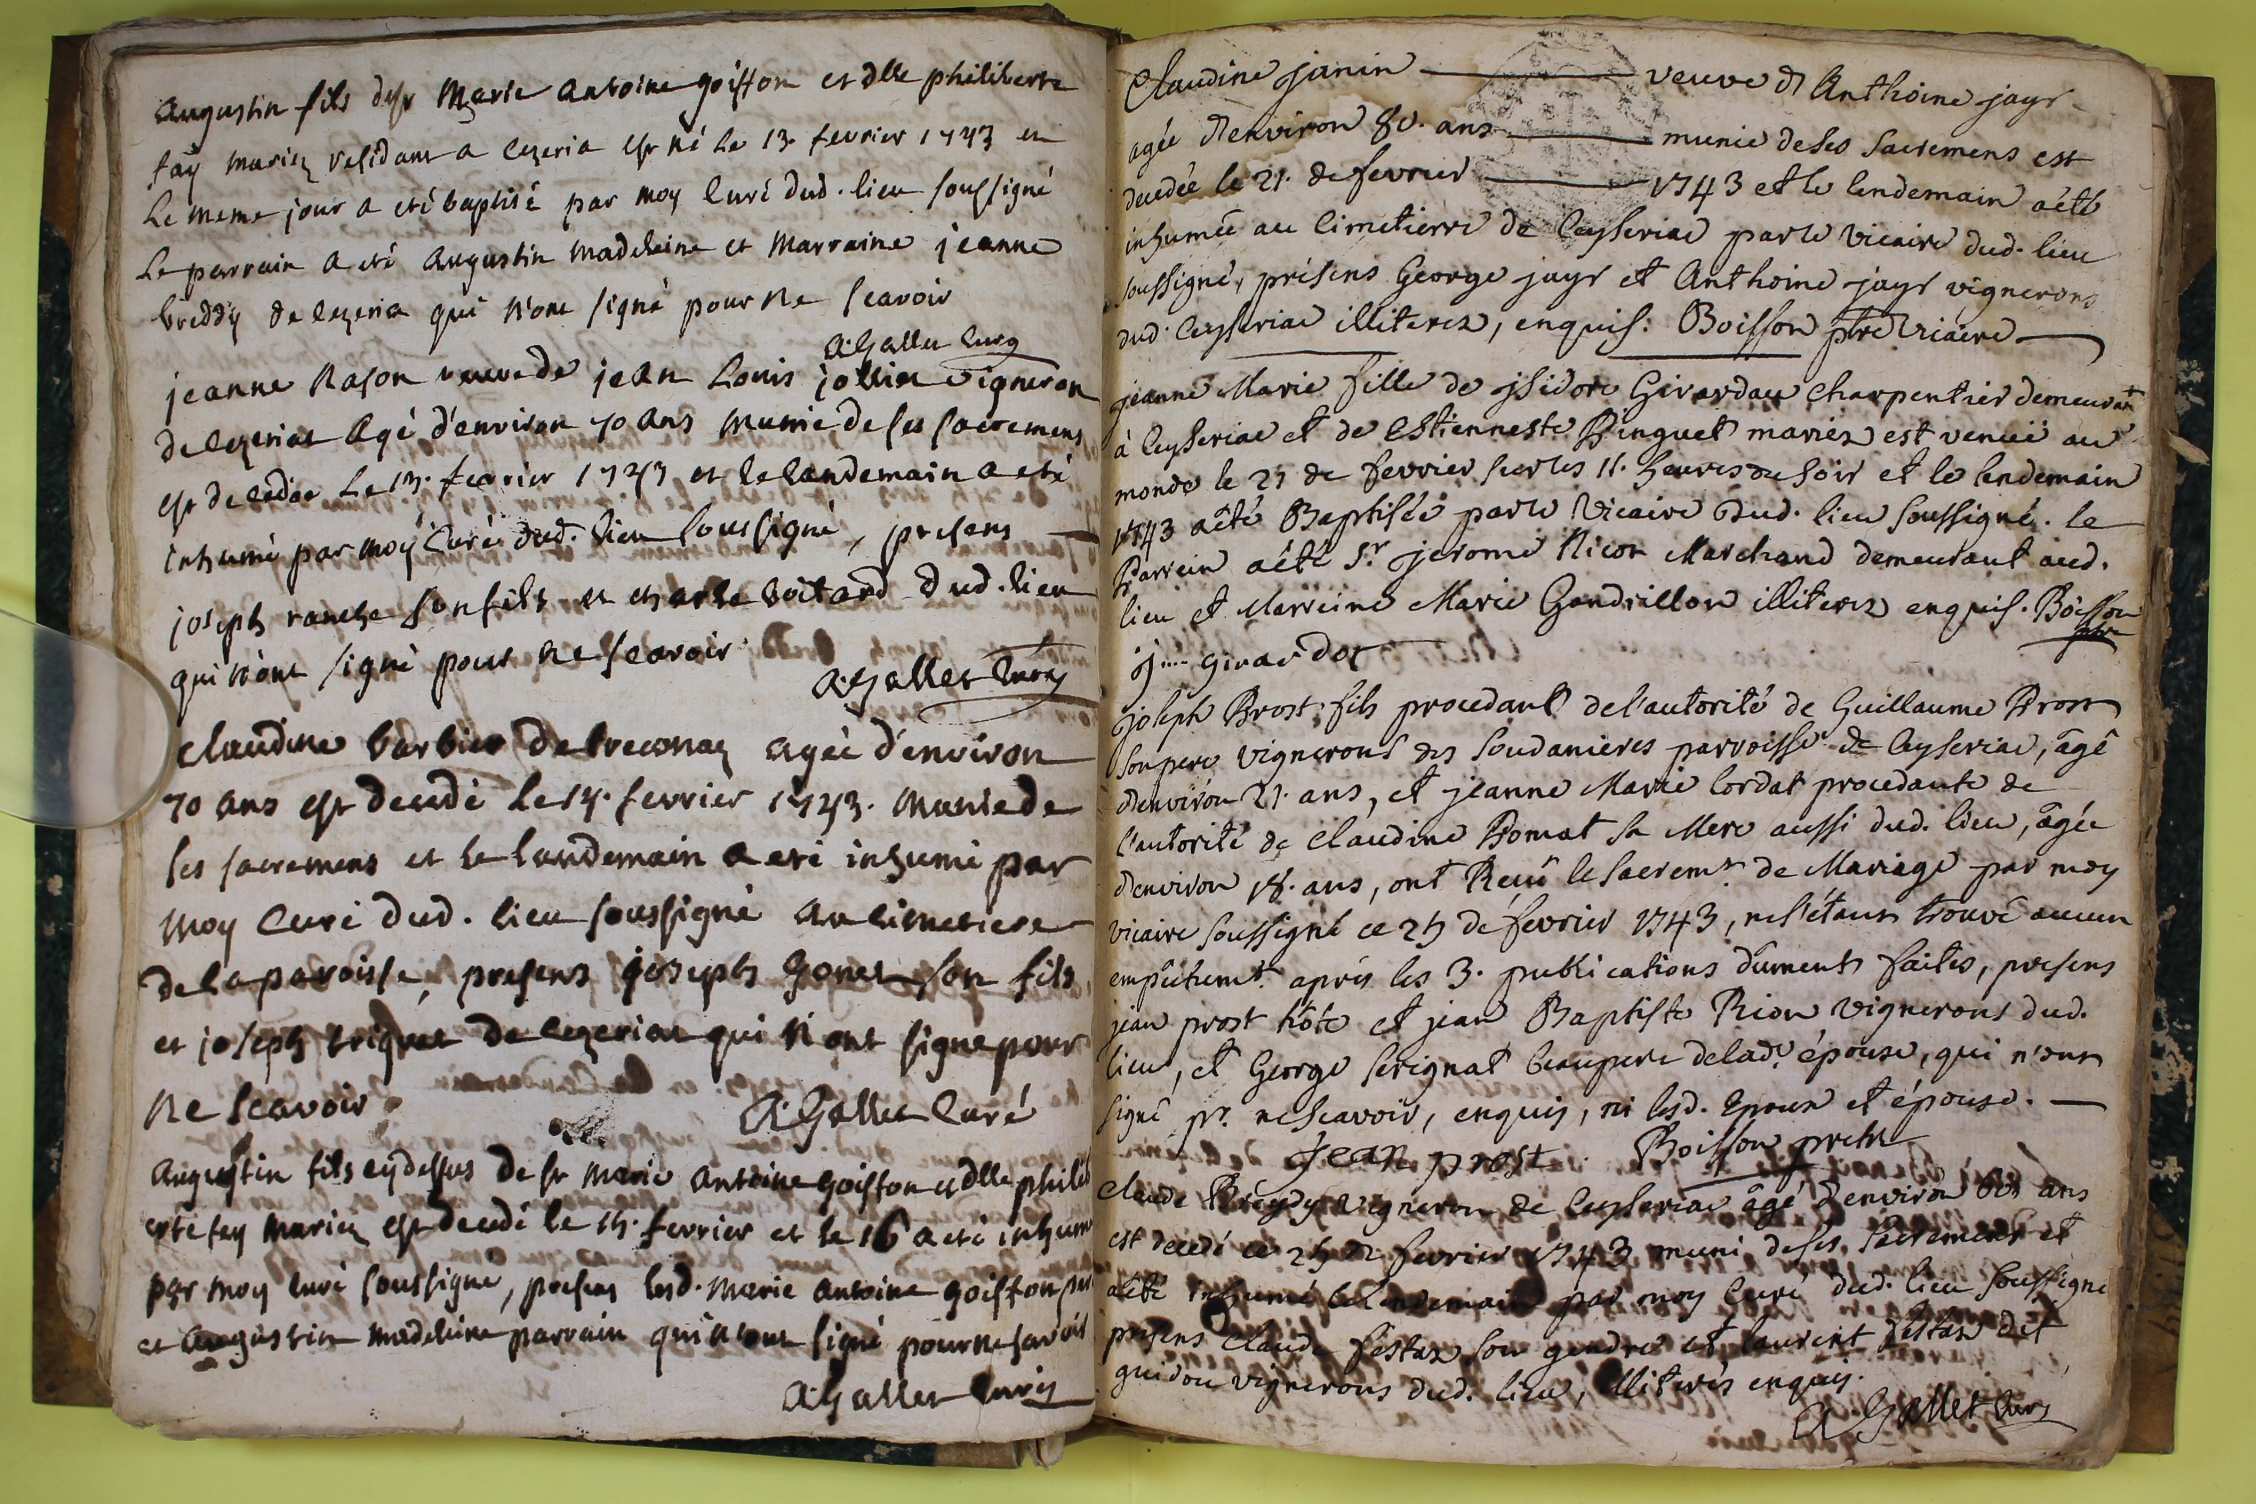 Augustin fils de sr Marie Antoine goiffon et dlle philiberte
fay mariez residant a cezeria est né le 13. fevrier 1743 et
le meme jour a eté baptisé par moy curé dud. lieu soussigné
le parrain a eté Augustin madeleine et Marraine jeanne
breddy de cezeria qui n'ont signé pour ne scavoir
A. Gallet Curé
jeanne Rason veuve de jean Louis vigneron
de cezeriat agé d'environ 70 ans munie de ses sacremens
est decedée le 13. fevrier 1743 et le landemain a eté
inhumé par moy Curé dud. lieu soussigné, presens
joseph ranche son fils et charle boitard dud. lieu
qui n'ont signé pour ne scavoir
A. Gallet Curé
Claudine barbier de agée d'environ
70 ans est decedé le 14. fevrier 1743. munie de
ses sacremens et le landemain a eté inhumé par
moy Curé dud. lieu soussigné au cimetiere
de la paroisse, presens joseph gonet son fils
et joseph briquet de cezeriat qui n'ont signé pour
ne scavoir
A. Gallet Curé
Augustin fils cy dessus de sr Marie Antoine goiffon et dlle philib
erte fay mariez est decedé le 15. fevrier et le 16 a eté inhumé
par moy curé soussigné, presens lesd. Marie Antoine goiffon per
et Augustin madeleine parrain qui n'ont signé pour ne savoir
A. Gallet Curé
Claudine janin veuve d' Anthoine jayr
agée d'environ 80. ans munie de ses sacremens est
decedée le 21. de fevrier 1743 et le lendemain a été
inhumée au Cimetierre de Ceyseriac par le vicaire dud. lieu
soussigné, présens George jayr et Anthoine jayr vignerons
dud. Ceyseriac illiterez, enquis: Boisson ptre viaire
jeanne Marie fille de jsidore Girardau Charpentier demeurant
à Ceyseriac et de Estienneste Binguet mariéz est venuë au
monde le 21 de fevrier sur les 11. heures du soir et le lendemain
1743 a été Baptisée par le Vicaire dud. lieu soussigné. le
Parrein a été Sr. jerome Nicon Marchand demeurant aud.
lieu et Marreine Marie Gondrillon illiterez enquis. Boisson
ptre
girardot
joseph Prost fils procedant de l'autorité de Guillaume Prost
son pere vignerons des Soudanieres parroisse de Ceyseriac, âgé
d'environ 21. ans, et jeanne Marie Cordat procedante de
l'autorité de Claudine Pomat sa Mere aussi dud. lieu, âgée
d'environ 18. ans, ont Reçû le Sacremt. de Mariage par moy
vicaire soussigné ce 25 de fevrier 1743, ne s'étant trouvé aucun
empéchemt. aprés les 3. publications dûments faites, presens
jean prost hôte et jean Baptiste Rion vignerons dud.
lieu, et George Serignat beaupere de lade. épouse, qui n'ont
signé pr. ne scavoir, enquis, ni lesd. Epoux et épouse.
Jean prost. Boisson pretre
Claude Breydy vigneron de Ceyseriac âgé d'environ ans
est decedé ce 25 de fevrier 1743 muni de ses sacremens et
a été inhumé le lendemain par moy Curé dud. lieu soussigné
presens Claude festaz son gendre et laurent festaz dit
guidou vignerons dud. lieu, illiterés enquis.
A Gallet Curé